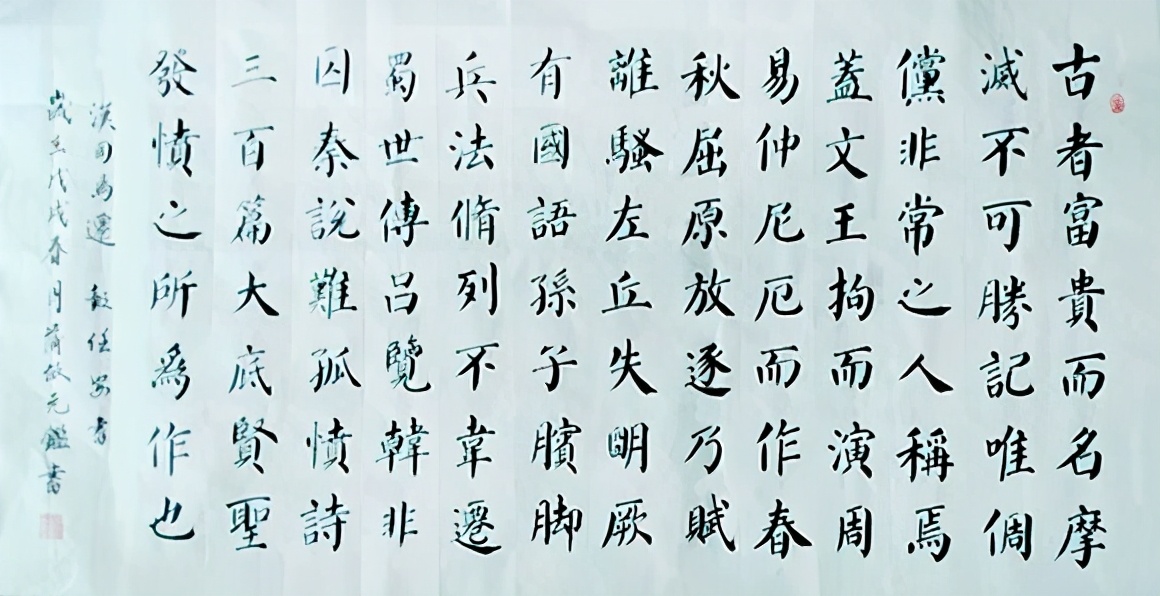 古者富貴而名摩
滅不可勝記唯倜
儻非常之人稱焉
蓋文王拘而演周
易仲尼厄而作春
秋屈原放逐乃賦
離騷左丘失明厥
有國語孫子臏脚
兵法脩列不韋遷
蜀世傳呂覽韓非
囚秦説難孤憤詩
三百篇大底賢聖
發憤之所爲作也
漢司馬遷 報任安書
歲在戊戌春月元鑑書